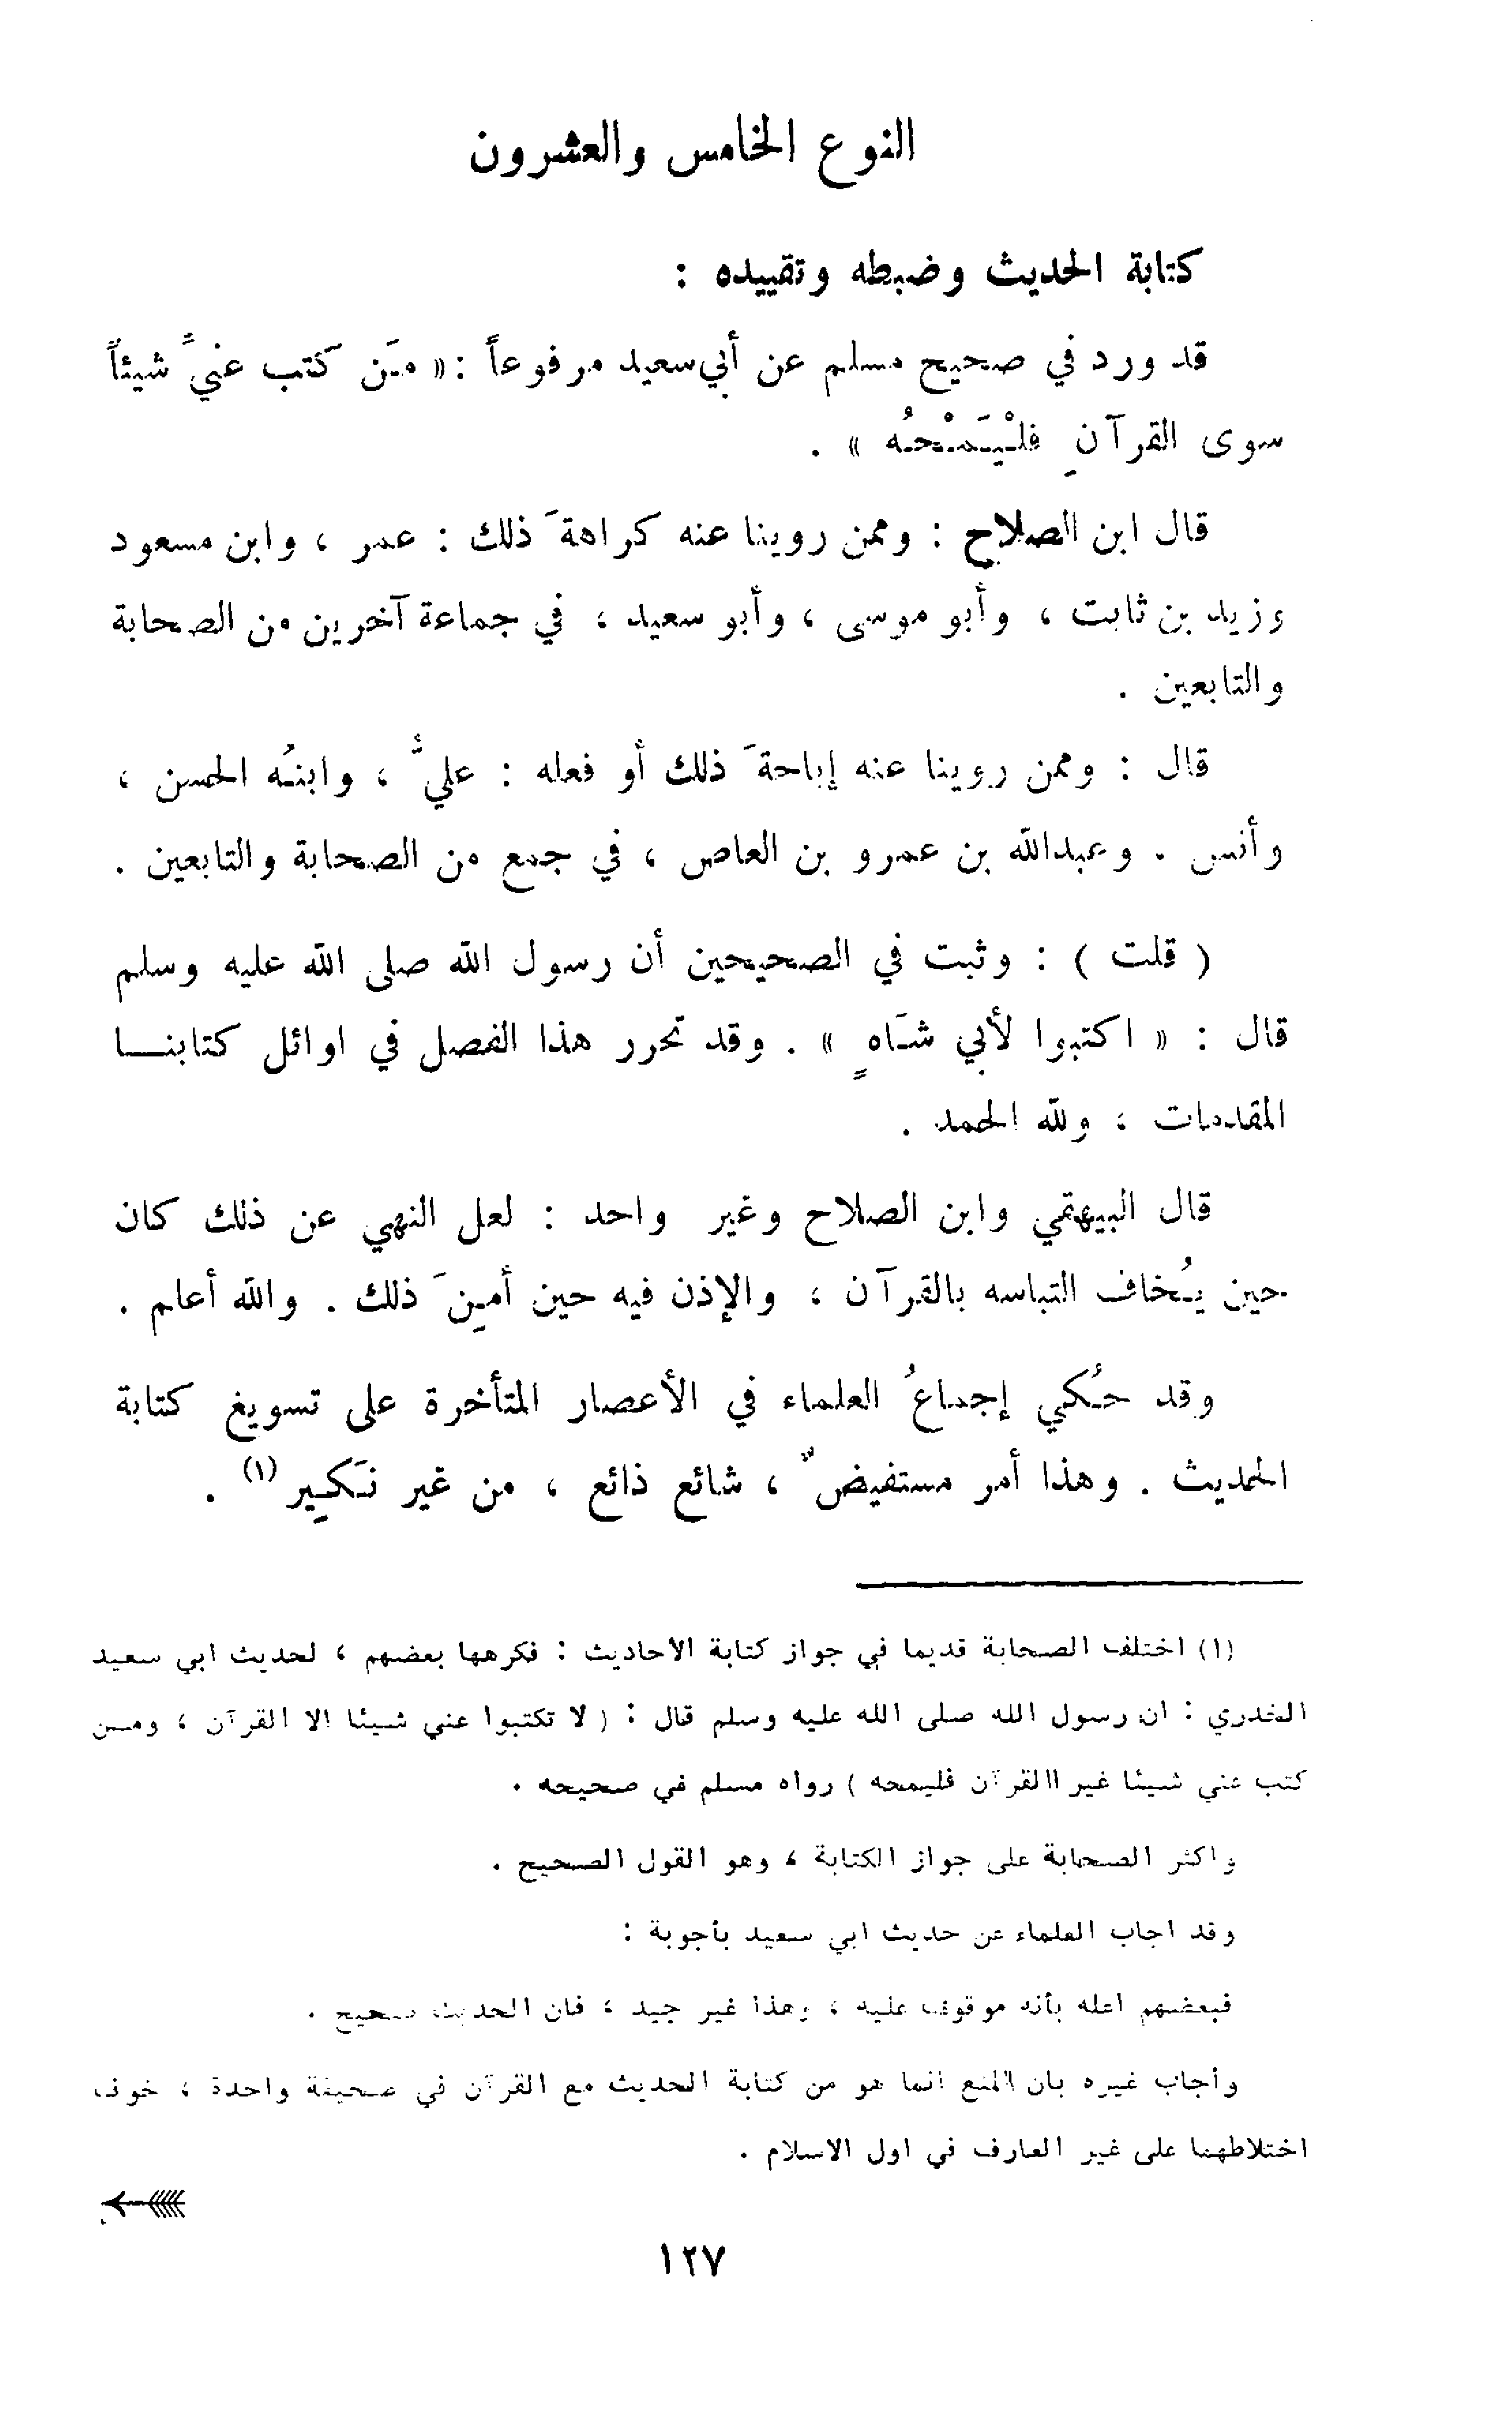 النوع الخامس والعشرون
كتابة الحديث وضبطه وتقييده :
قد ورد في صحيح مسلم عن أبي سعيد مرفوعاً : « مَن كتب عنيّ شيئاً
سوى القرآنِ فلْيَمْحُه » .
قال ابن الصلاح : وممن روينا عنه كراهةَ ذلك : عمر ، وابن مسعود
وزيد بن ثابت ، وأبو موسى ، وأبو سعيد ، في جماعة آخرين من الصحابة
والتابعين .
قال : وممن روينا عنه إباحةَ ذلك أو فعله : عليٌّ ، وابنُه الحسن ،
وأنس . وعبدالله بن عمرو بن العاص ، في جمع من الصحابة والتابعين .
( قلت ) : وثبت في الصحيحين أن رسول الله صلى الله عليه وسلم
قال : « اكتبوا لأبي شَاهٍ » . وقد تحرر هذا الفصل في اوائل كتابنـــا
المقدمات ، ولله الحمد .
قال البيهقي وابن الصلاح وغير واحد : لعل النهي عن ذلك كان
حين يُخاف التباسه بالقرآن ، والإذن فيه حين أمِنَ ذلك . والله أعلم .
وقد حُكي إجماعُ العلماء في الأعصار المتأخرة على تسويغ كتابة
الحديث . وهذا أمر مستفيضٌ ، شائع ذائع ، من غير نَكِير (١) .
(١) اختلف الصحابة قديما في جواز كتابة الاحاديث : فكرهها بعضهم ، لحديث ابي سعيد
الخدري : ان رسول الله صلى الله عليه وسلم قال : ( لا تكتبوا عني شيئا الا القرآن ، ومــن
كتب عني شيئا غير االقرآن فليمحه ) رواه مسلم في صحيحه .
واكثر الصحابة على جواز الكتابة ، وهو القول الصحيح .
وقد اجاب العلماء عن حديث ابي سعيد بأجوبة :
فبعضهم اعله بأنه موقوف عليه ، وهذا غير جيد ، فان الحديث صحيح .
وأجاب غيره بان المنع انما هو من كتابة الحديث مع القرآن في صحيفة واحدة ، خوف
اختلاطهما على غير العارف في اول الاسلام .
١٢٧